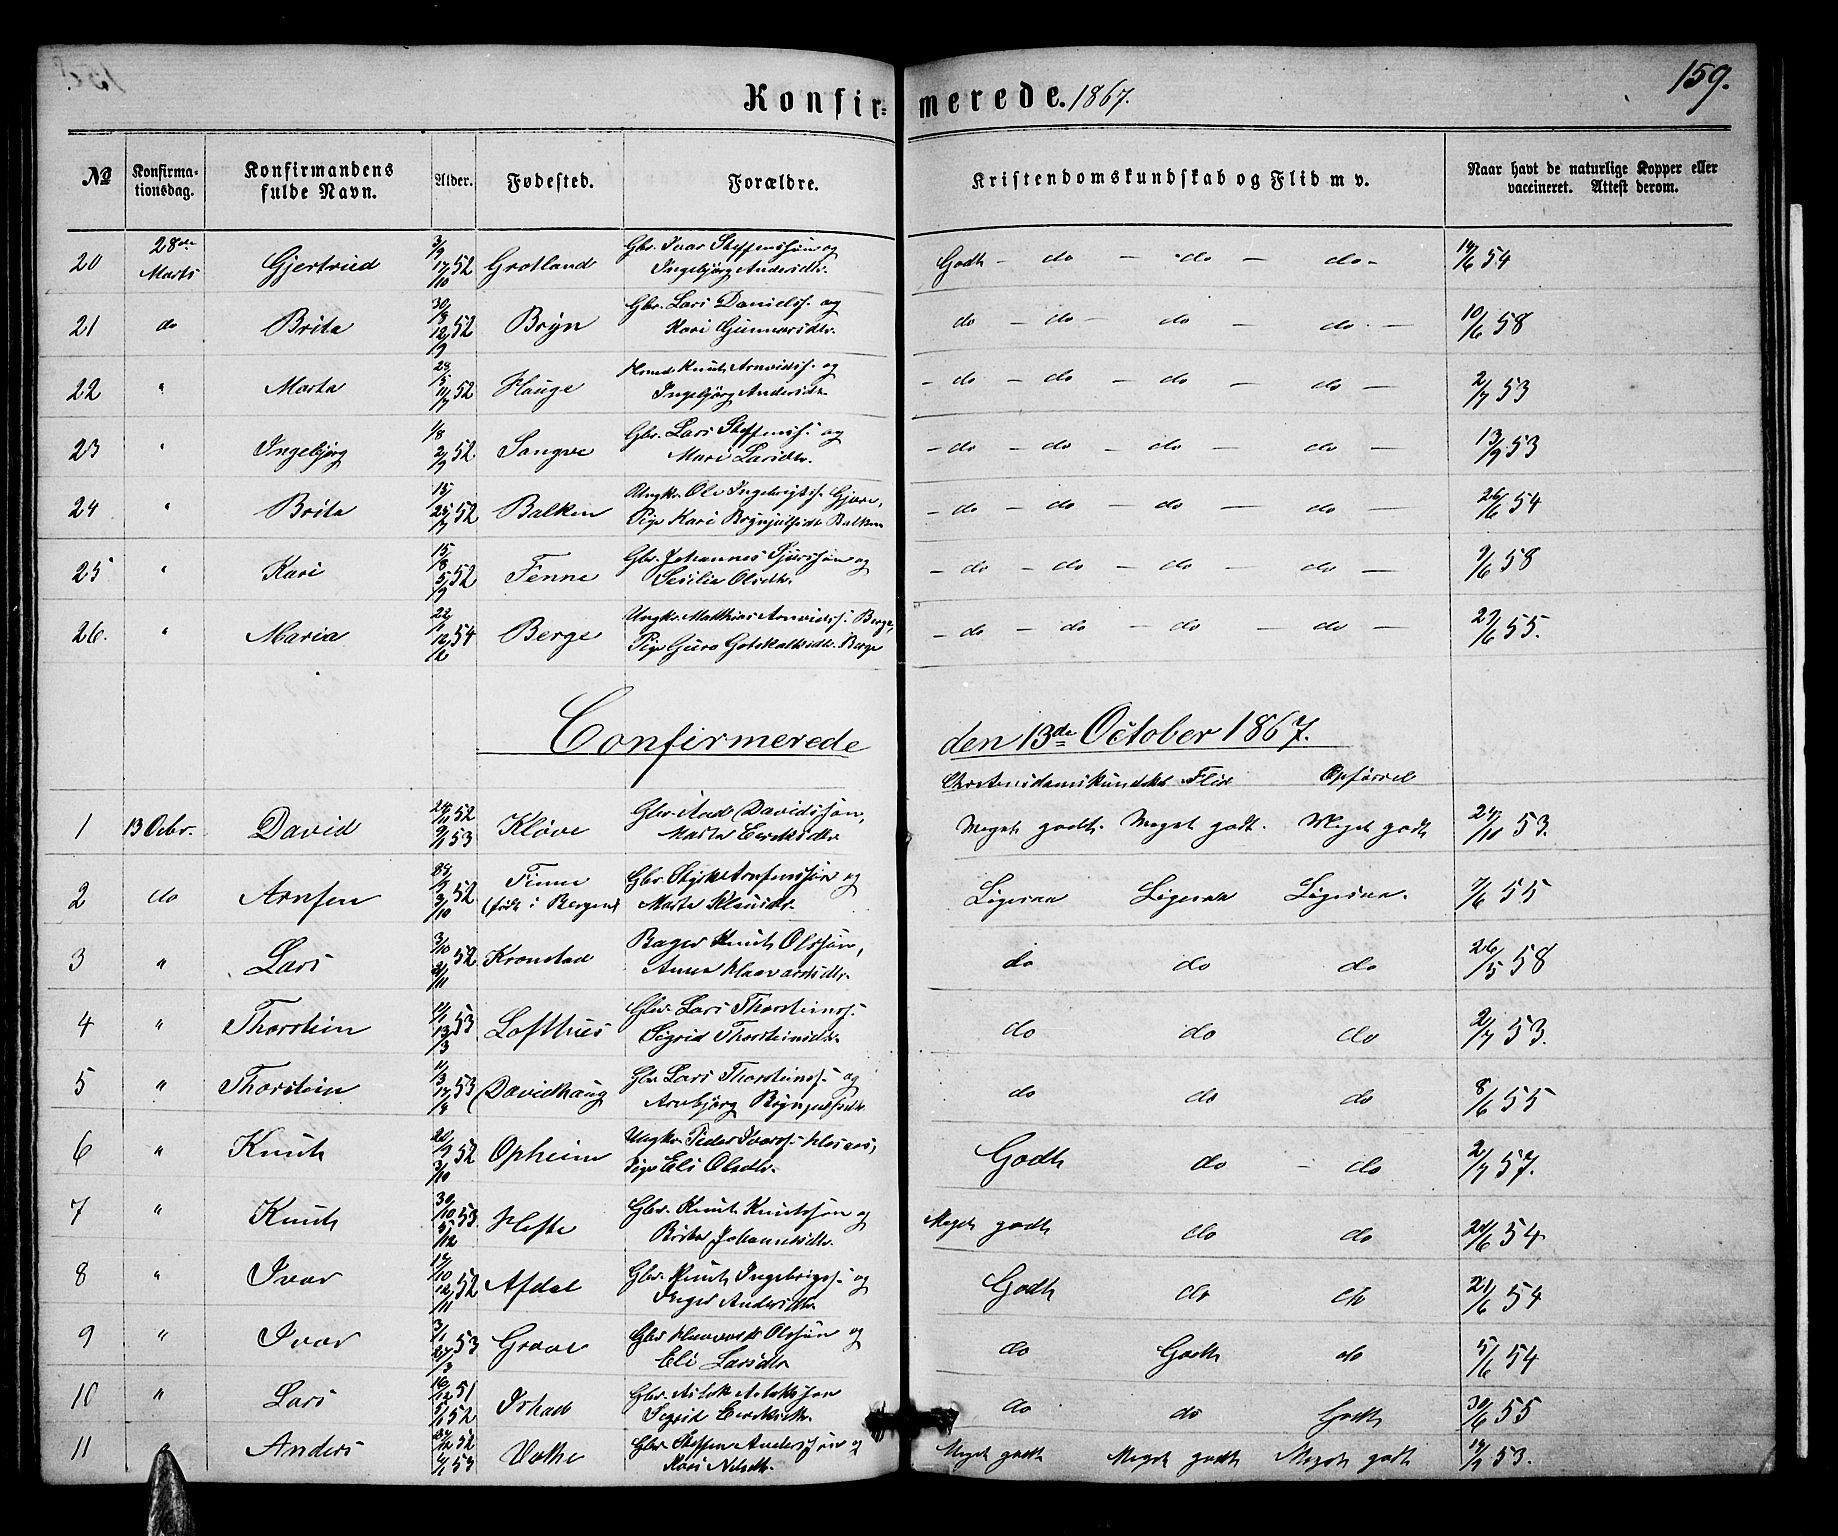 159.
Konfirmerede. 1867.
No Konfirmationsdag. Konfirmandens fulde Navn. Alder. Fødested. Forældre. Kristendomskundskab og Flid m v. Naar havt de naturlige Kopper eller vaccineret. Attest derom.
20 28de Marts Gjertrud 3/9 17/10 52 Grotland Gbr. Ivar Steffenssøn og Ingebjørg Andersdtr. Godt - do - do - do - 14/6 54
21 do Brita 30/8 12/9 52 Bryn Gbr. Lars Daniels. og Kari Gunnarsdtr. do - do - do - do - 10/6 58
22 " Marta 11/7 52 Hauge Knut Arnvids. og Ingebjørg Andersdtr. - do - do - do - do - 2/7 53
23 " Ingebjørg 1/8 2/9 52 Sangve Gbr. Lars Steffens. og Mari Larsdtr. - do - do - do - do - 13/9 53
24 " Brita 25/7 52 Balken Ungkr. Ole Ingebrigts. Gjære, Pige Kari Brynjulfsdtr Balken - do - do - do - do - 26/6 54
25 " Kari 15/8 5/9 52 Fenne Gbr. Johannes Sjurssøn og Sesilia Olsdtr. - do - do - do - do - 9/6 58
26. " Maria 12/2 54 Berge Ungkr. Matthias Arnvids. Berge, Pige Guro Gotskalksdtr. Berge - do - do - do - do - 27/6 55.
Confirmerede den 13de October 1867.
Christendomskundskab Flid Opførsel
1 13 Octbr. David 52 9/1 53 Kløve Gbr. And Davidssøn, Marta Eriksdtr. Meget godt. Meget godt. Meget godt 24/10 53.
2 do Arnfen 52 Finne (født i Bergen) Gbr. Styrk Arnfenssøn og Marta Klausdtr. Ligesaa Ligesaa Ligesaa. 7/6 55
3 " Lars 3/10 52 Kronstad Bager Knut Olssøn, Anna Haavarsdtr. do do do 26/5 58
4 " Thorstein 11/1 13/3 53 Lofthus Gbr. Lars Thorsteins. Sigrid Thorsteinsdtr. do do do 2/7 53.
5 " Thorstein 53 Davidhaug Gbr. Lars Thorsteins. og Arnbjørg Brynjulfsdtr. do do do 8/6 55
6 " Knut 20/9 3/10 52 Opheim Ungkr. Peder Ivars. Pige Eli Olsdtr. Godt do - do 2/7 57.
7 " Knut 30/10 53 Hefte Gbr. Knut Knutssøn og Brita Johannesdtr. Meget godt do do 24/6 54
8 " Ivar 12/11 52 Afdal Gbr. Knut Ingebrigs. og Inger Andersdtr Godt do do 24/6 54
9 " Ivar 3/1 27/3 53 Grove Gbr. Haavard Olssøn og Eli Larsdtr do Godt do 5/6 54
10 " Lars 16/12 51 52 Ishad Gbr. Aslak Aslakssøn Sigrid Eriksdtr. do do Godt 30/6 55
11 " Anders 52 53 Vethe Gbr. Steffen Anderssøn og Kari Nilsdtr. Meget godt Meget godt Meget godt 53.